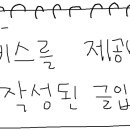 비스를 제공
작성된 글입